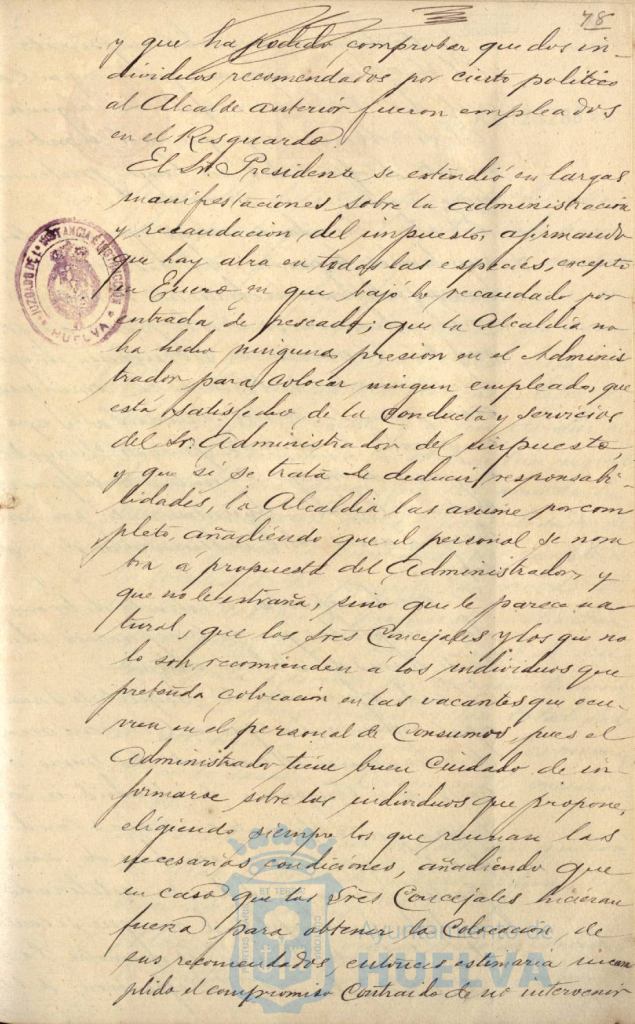 78
y que ha podido comprobar que dos in-
dividuos recomendados por cierto político
al Alcalde anterior fueron empleados
en el Resguardo.
El Sr. Presidente se estendió en largas
manifestaciones sobre la administración
y recaudación del impuesto, afirmando
que hay alza en todas las especies, excepto
en Enero en que bajó lo recaudado por
entrada de pescado; que la Alcaldia no
ha hecho ninguna presion en el Adminis
trador para colocar ningun empleado, que
está satisfecho de la conducta y servicios
del Sr. Administrador del impuesto,
y que si se trata de deducir responsabi-
lidades, la Alcaldia las asume por com
pleto, añadiendo que el personal se nom
bra á propuesta del Administrador, y
que no le estraña, sino que le parece na
tural, que los Sres Concejales y los que no
lo son recomienden á los individuos que
pretenda colocación en las vacantes que ocu-
rren en el personal de Consumos, pues el
Administrador tiene buen cuidado de in-
formarse sobre los individuos que propone,
eligiendo siempre los que reunan las
necesarias condiciones, añadiendo que
en caso que los Sres Concejales hicieran
fuerza para obtener la colocación de
sus recomendados, entonces estimaria incum
plido el compromiso contraido de no intervenir
JUZGADO DE 1ª INSTANCIA É INSTRUCCION
HUELVA
Ayuntamiento de
HUELVA